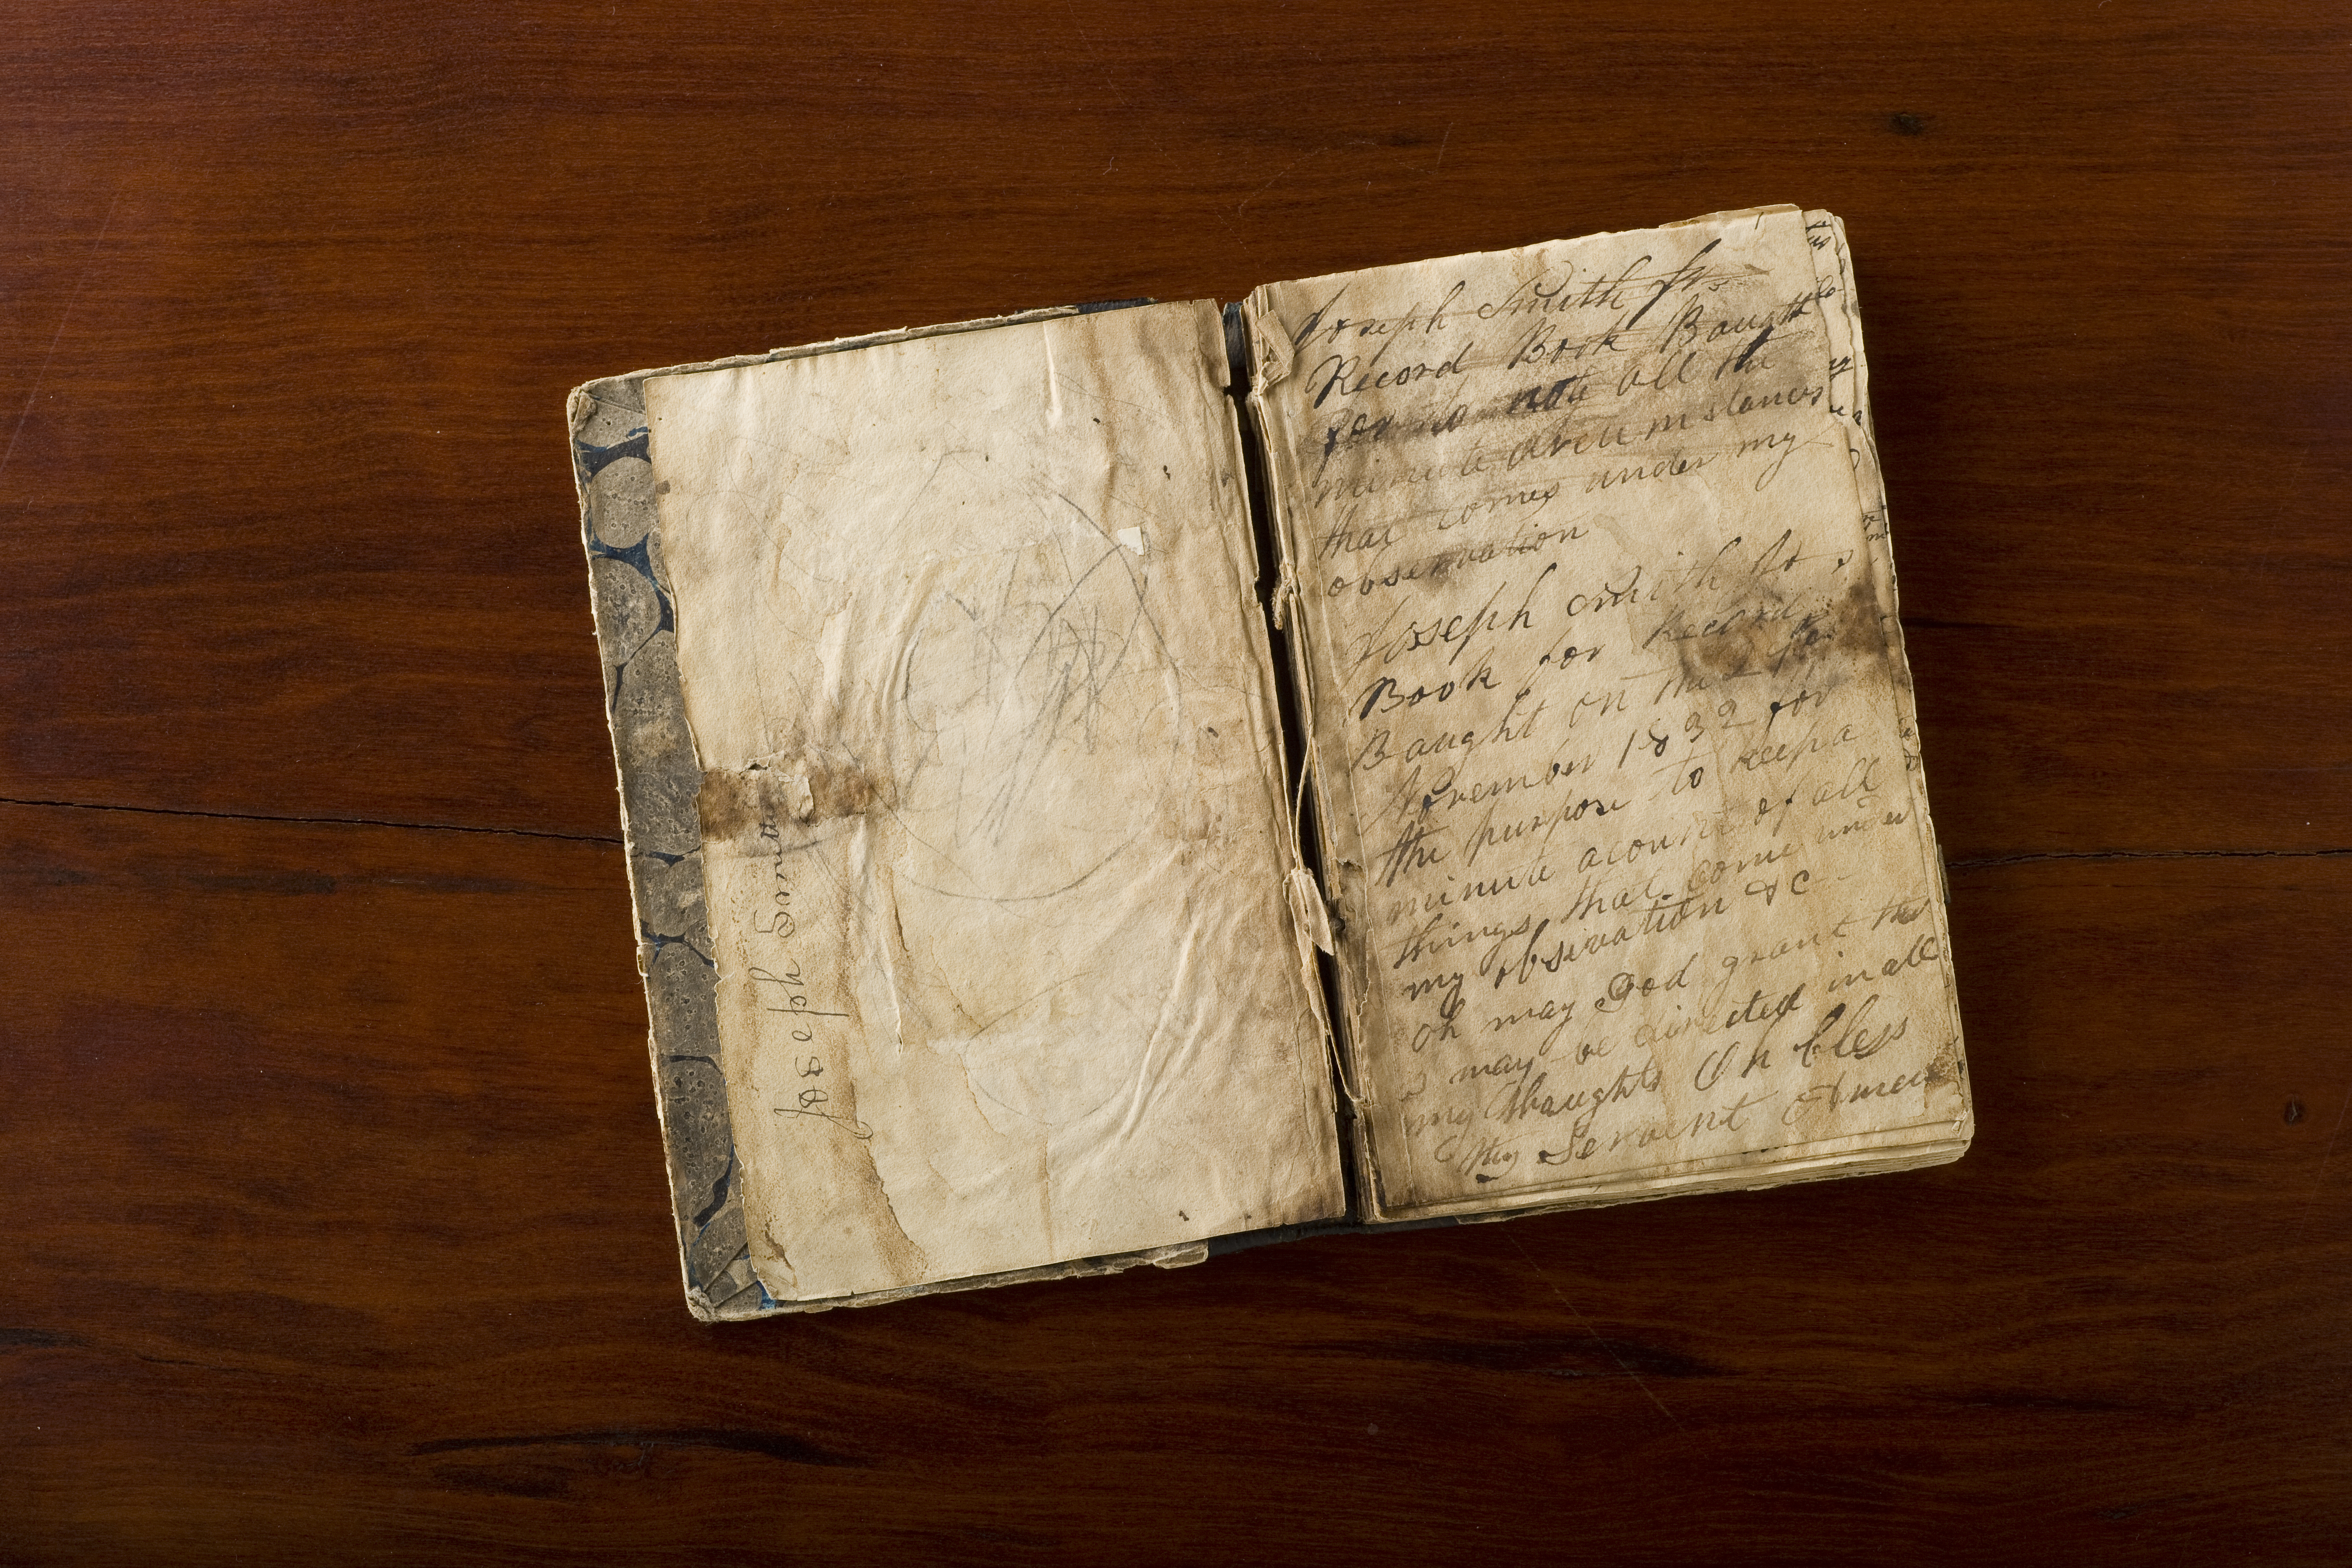 Joseph Smith Jrs
Record Book Baught
for to note all the
minute circumstances
that comes under my
observation
Joseph Smith Jrs
Book for Record
Baught on the 27th
November 1832 for
the purpose to keep a
minute acount of all
things that come under
my obsirvation &c
oh may God grant that
I may be directed in all
my thaughts Oh bless
thy Servent Amen
Joseph